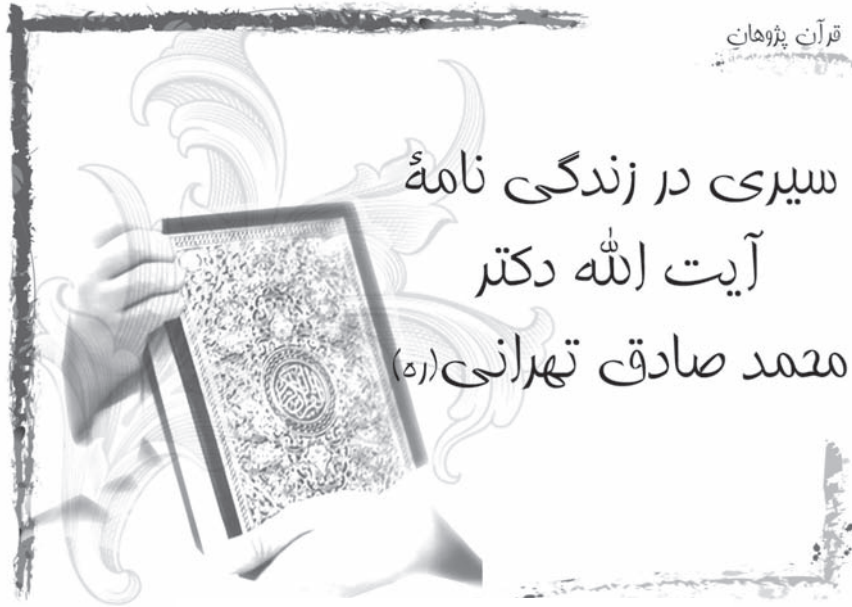 قرآن پژوهان
سیری در زندگی نامهٔ
آیت الله دکتر
محمد صادق تهرانی(ره)